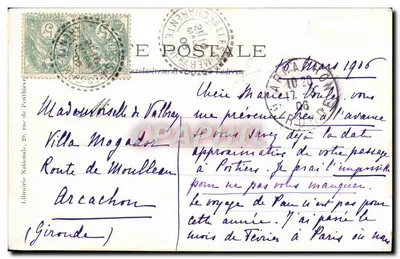 CARTE POSTALE
16 Mars 1906
Chère Marie, Voulez vous
me prévenir à l'avance
si vous avez déjà la date
approximative de votre passage
à Poitiers. Je ferai l'impossible
pour ne pas vous manquer.
Le voyage de Pau n'est pas pour
cette année. J'ai passé le
mois de Février à Paris où
Mademoiselle de
Villa Mogador
Route de Moulleau
Arcachon
(Gironde)
Librairie Nationale, 29, rue de Penthièvre
ARCACHON
GIRONDE